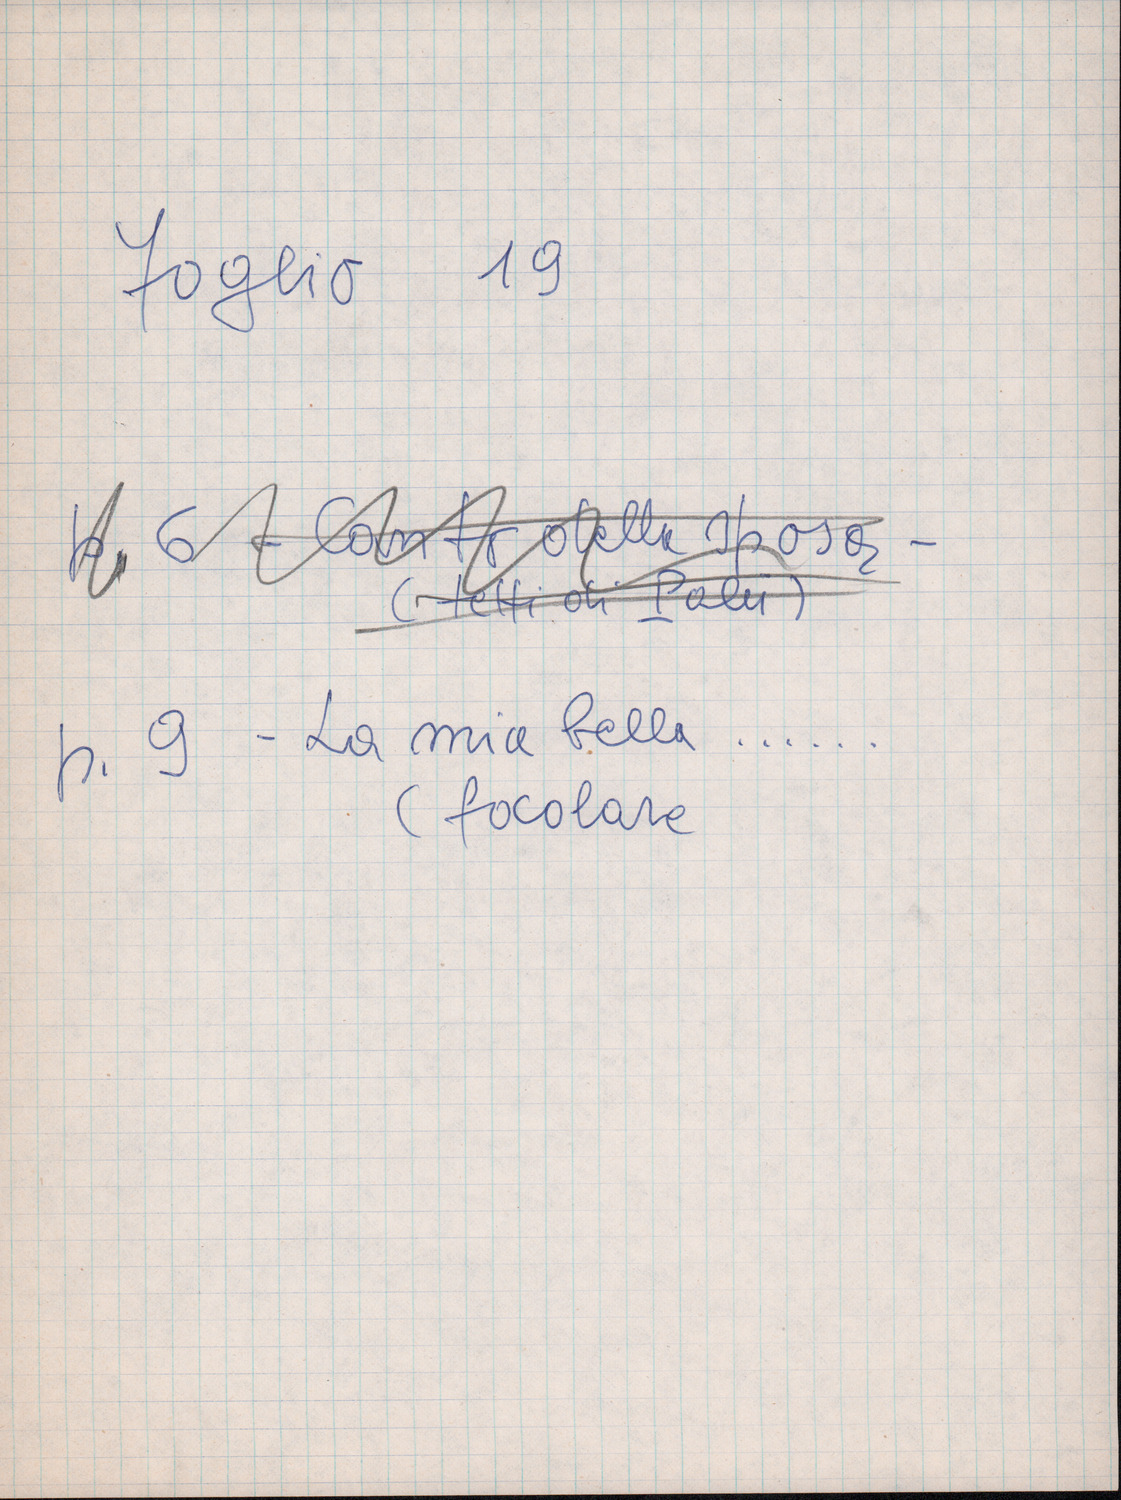 Foglio 19
p. 6 - Canto della sposa -
(tetti di
p. 9 - La mia bella .......
( focolare